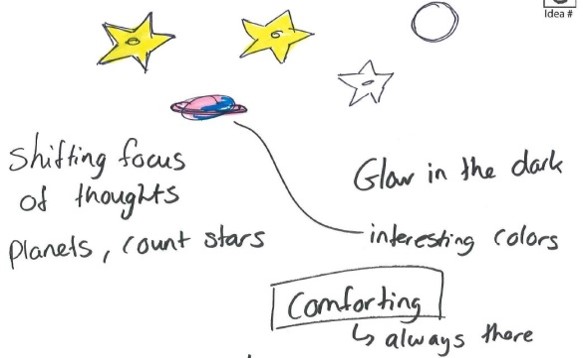 Idea #
Shifting focus
of thoughts
Planets, count stars
Glow in the dark
interesting colors
Comforting
↳ always there